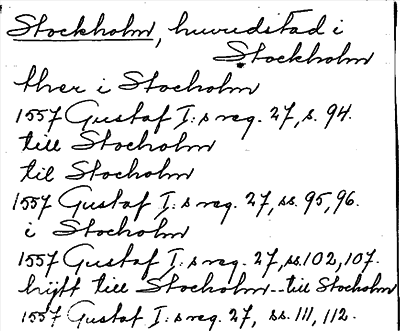 Stockholm, huvudstad i
Stockholm
ther i Stocholm
1557 Gustaf I:s reg. 27, s. 94.
till Stocholm
til Stocholm
1557 Gustaf I:s reg. 27, ss. 95, 96.
i Stocholm
1557 Gustaf I:s reg. 27, ss. 102, 107.
hijtt till Stocholm -- till Stocholm
1557 Gustaf I:s reg. 27, ss. 111, 112.